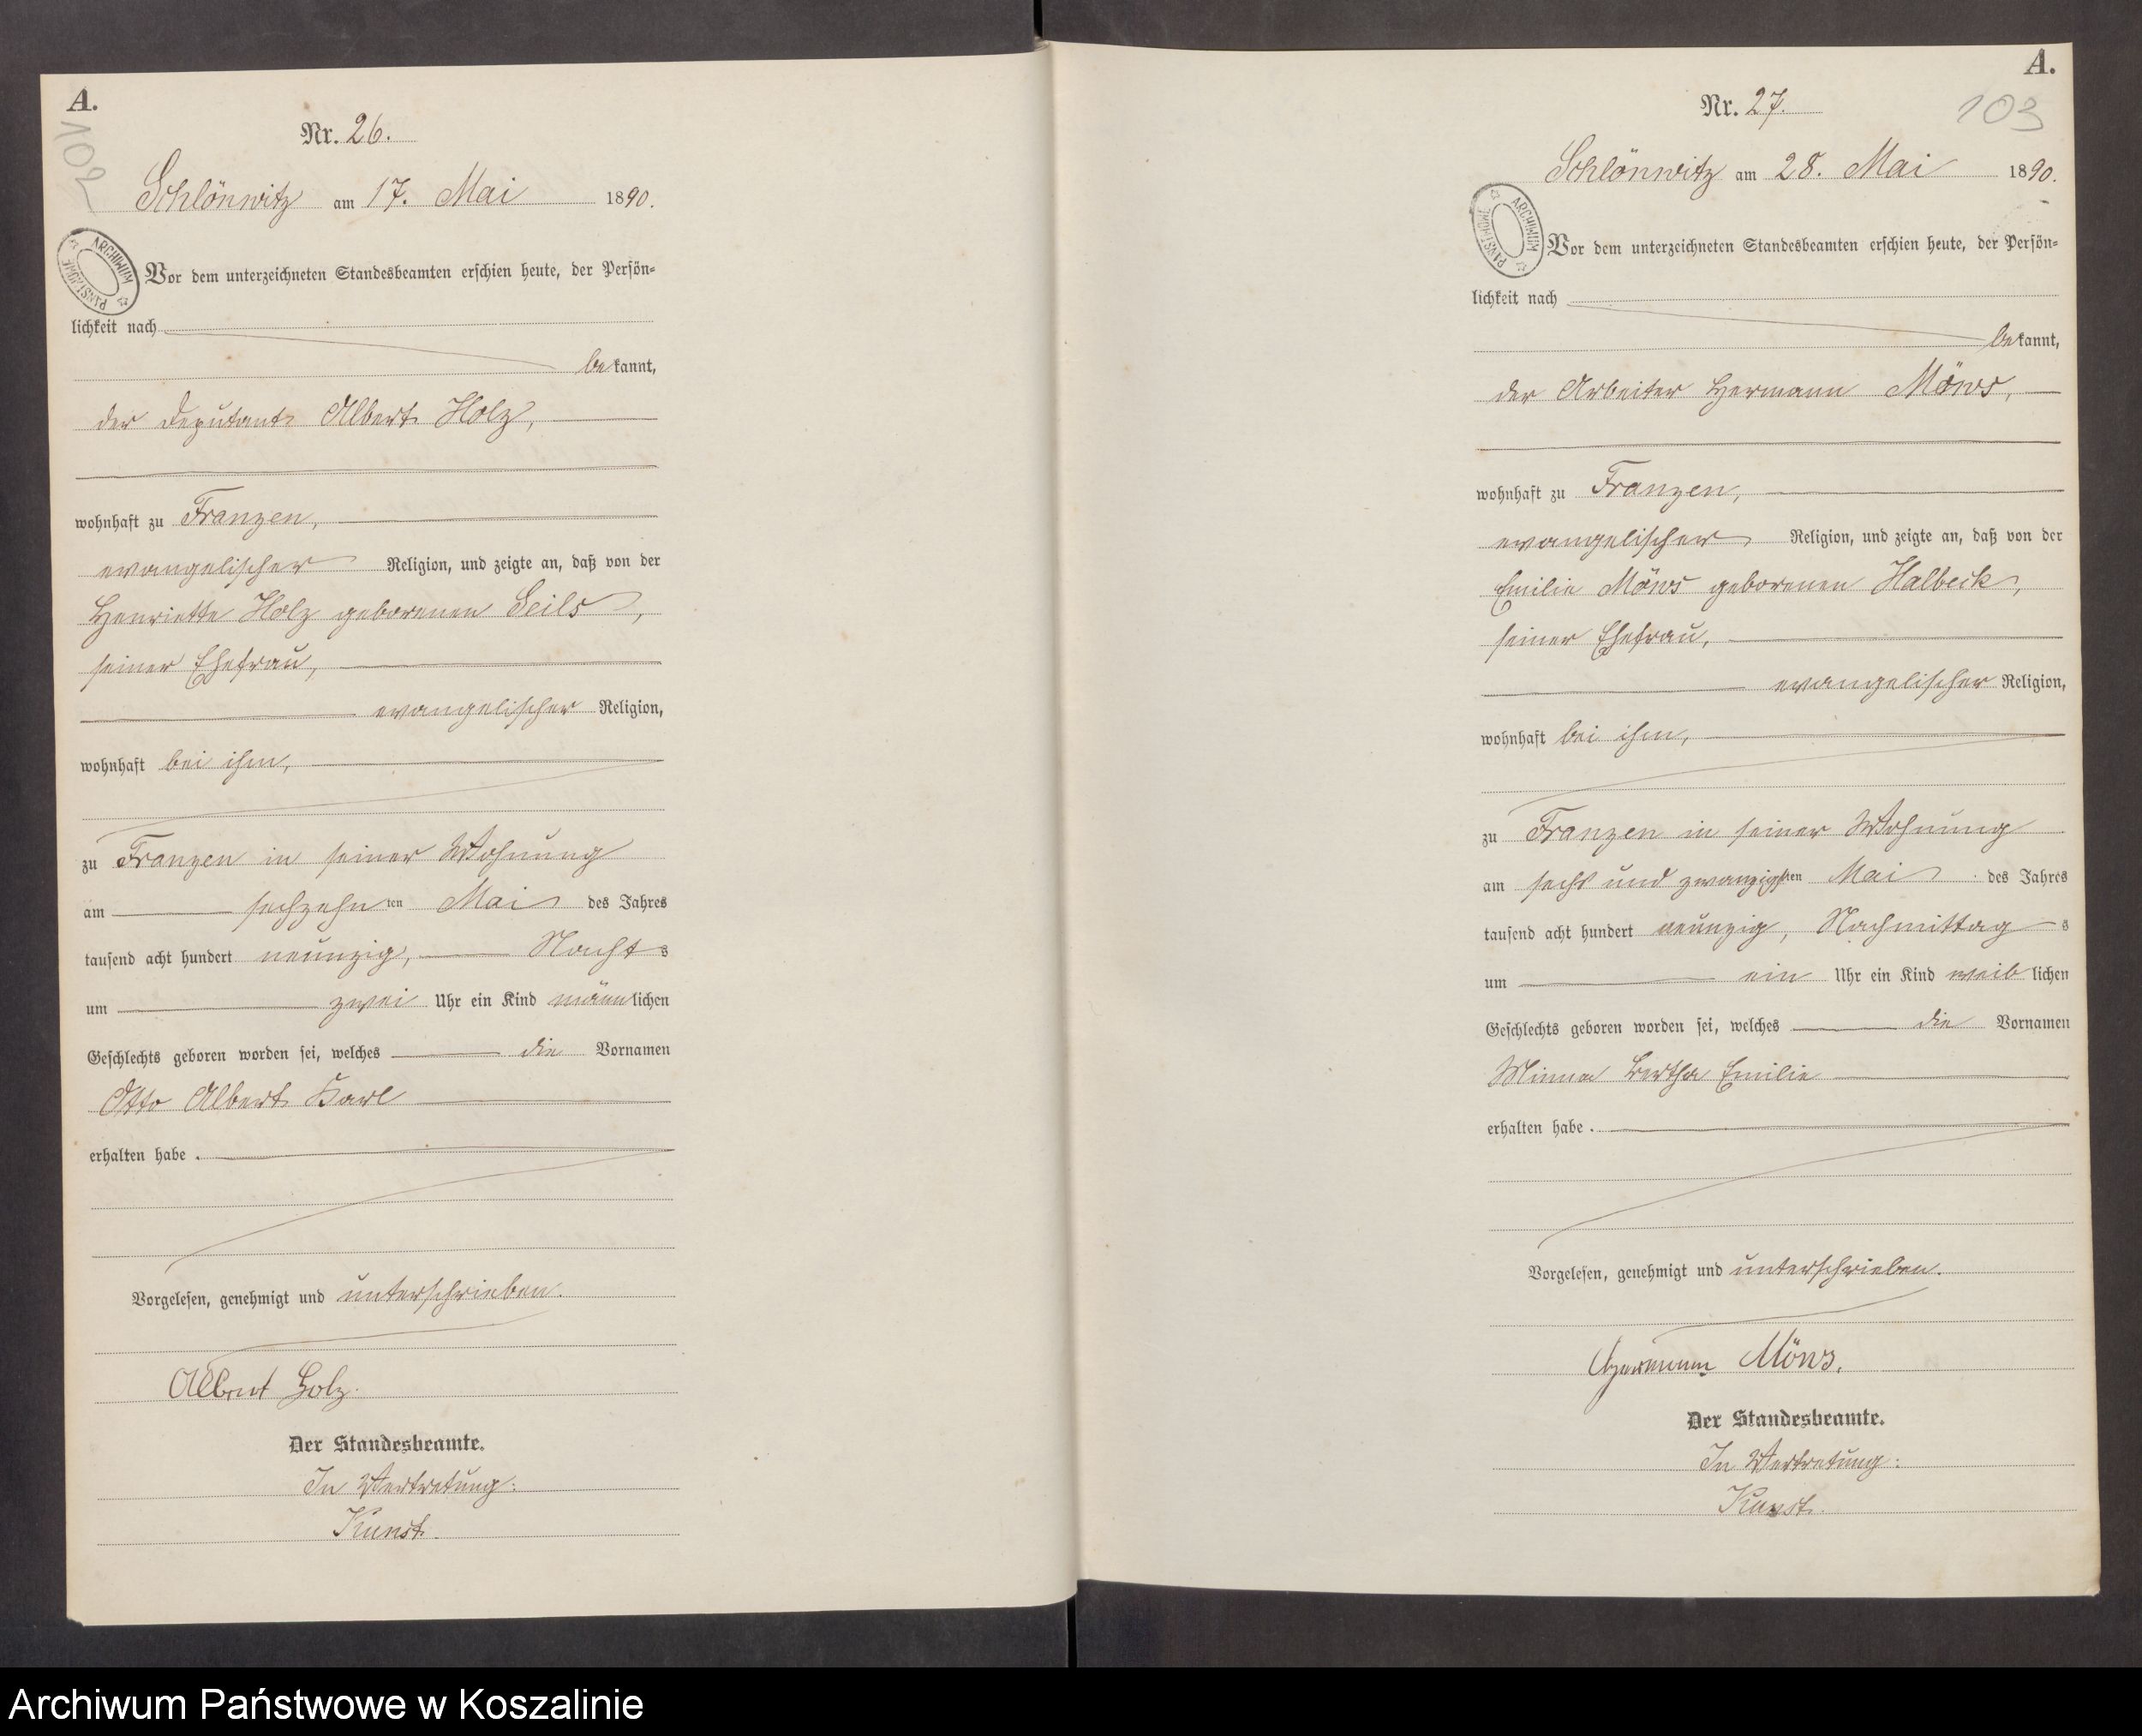 A.
102
Nr. 26.
Schlönwitz am 17. Mai 1890.
ARCHIWUM PAŃSTWOWE
Vor dem unterzeichneten Standesbeamten erschien heute, der Persön-
lichkeit nach
bekannt,
der Deputant Albert Holz,
wohnhaft zu Franzen,
evangelischer Religion, und zeigte an, daß von der
Henriette Holz geborenen Seils,
seiner Ehefrau,
evangelischer Religion,
wohnhaft bei ihm,
zu Franzen in seiner Wohnung
am sechzehnten Mai des Jahres
tausend acht hundert neunzig, Nachts
um zwei Uhr ein Kind männlichen
Geschlechts geboren worden sei, welches die Vornamen
Otto Albert Karl
erhalten habe.
Vorgelesen, genehmigt und unterschrieben.
Albert Holz.
Der Standesbeamte.
In Vertretung:
Kunst.
A.
103
Nr. 27.
Schlönwitz am 28. Mai 1890.
ARCHIWUM PAŃSTWOWE
Vor dem unterzeichneten Standesbeamten erschien heute, der Persön-
lichkeit nach
bekannt,
der Arbeiter Hermann Möws,
wohnhaft zu Franzen,
evangelischer Religion, und zeigte an, daß von der
Emilie Möws geborenen Halbeck,
seiner Ehefrau,
evangelischer Religion,
wohnhaft bei ihm,
zu Franzen in seiner Wohnung
am sechs und zwanzigsten Mai des Jahres
tausend acht hundert neunzig, Nachmittags
um ein Uhr ein Kind weiblichen
Geschlechts geboren worden sei, welches die Vornamen
Minna Bertha Emilie
erhalten habe.
Vorgelesen, genehmigt und unterschrieben.
Hermann Möws.
Der Standesbeamte.
In Vertretung:
Kunst.
Archiwum Państwowe w Koszalinie